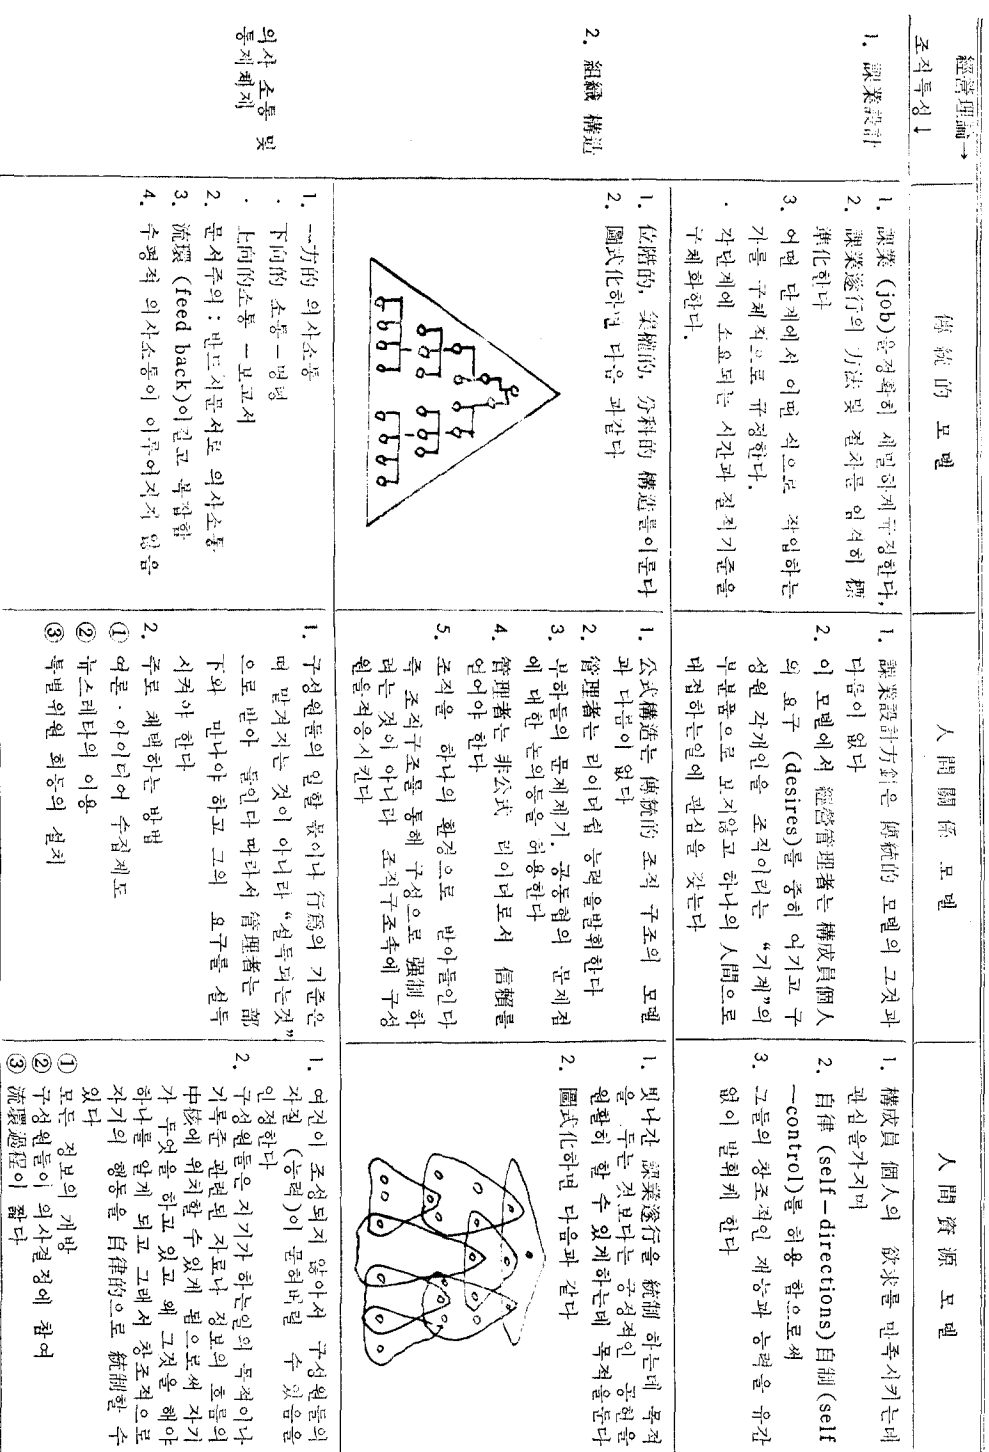 經營理論→
조직특성↓
傳統的 모델
人間關係 모델
人間資源 모델
1. 課業設計
1. 課業 (job)을정확히 세밀하게규정한다,
2. 課業遂行의 方法 및 절차를 엄격히 標
準化한다
3. 어떤 단계에서 어떤 식으로 작업하는
가를 구체적으로 규정한다.
· 각단계에 소요되는 시간과 질적기준을
구체화한다.
1. 課業設計方針은 傳統的 모델의 그것과
다름이 없다
2. 이 모델에서 經營管理者는 構成員個人
의 요구 (desires)를 중히 여기고 구
성원 각개인을 조직이라는 “기계”의
부분품으로 보지않고 하나의 人間으로
대접하는일에 관심을 갖는다
1. 構成員 個人의 欲求를 만족시키는데
관심을가지며
2. 自律 (self-directions)自制(self
-control)를 허용 함으로써
3. 그들의 창조적인 재능과 능력을 유감
없이 발휘케 한다
2. 組織 構造
1. 位階的, 集權的, 分科的 構造를이룬다
2. 圖式化하면 다음 과같다
1. 公式構造는 傳統的 조직 구조의 모델
과 다름이 없다
2. 管理者는 리이더쉽 능력을발휘한다
3. 부하들의 문제제기, 공동협의 문제점
에 대한 논의등을 허용한다
4. 管理者는 非公式 리이더로서 信賴를
얻어야 한다
5. 조직을 하나의 환경으로 받아들인다
즉 조직구조를 통해 구성으로 强制 하
려는 것이 아니라 조직구조속에 구성
원을적응시킨다
1. 빗나간 課業遂行을 統制 하는데 목적
을 두는 것보다는 긍정적인 공헌을
원활히 할 수 있게하는데 목적을둔다
2. 圖式化하면 다음과 같다
의사 소통 및
통제체제
1. 一方的 의사소통
· 下向的 소통-명령
· 上向的소통 -보고서
2. 문서주의 : 반드시문서로 의사소통
3. 流環 (feed back)이길고 복잡함
4. 수평적 의사소통이 이루어지지 않음
1. 구성원들의 일할 몫이나 行爲의 기준은
떠 맡겨지는 것이 아니라 “설득되는것”
으로 받아 들인다 따라서 管理者는 部
下와 만나야 하고 그의 요구를 설득
시켜야 한다
2. 주로 채택하는 방법
① 여론·아이디어 수집제도
② 뉴스레타의 이용
③ 특별위원 회등의 설치
1. 여건이 조성되지 않아서 구성원들의
자질 (능력)이 묻혀버릴 수 있음을
인정한다
2. 구성원들은 자기가 하는일의 목적이나
기록준 관련된 자료나 정보의 흐름의
中核에 위치할 수 있게 됨으로써 자기
가 무엇을 하고 있고 왜 그것을 해야
하나를 알게 되고 그래서 창조적으로
자기의 행동을 自律的으로 統制할 수
있다
① 모든 정보의 개방
② 구성원들이 의사결정에 참여
③ 流環過程이 짧다